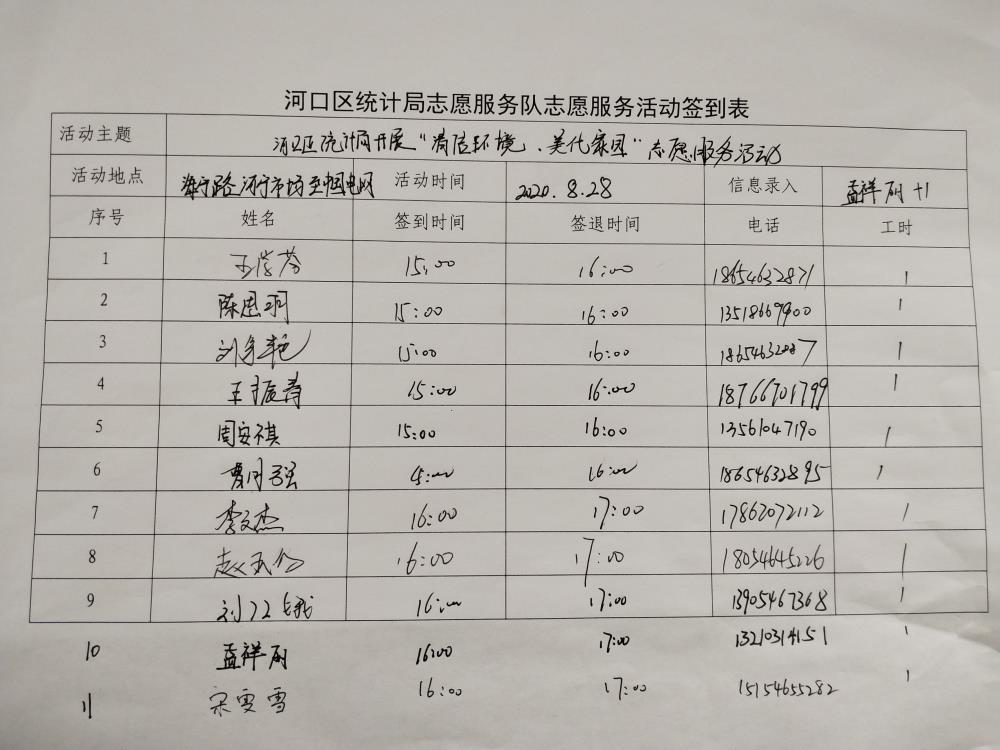 河口区统计局志愿服务队志愿服务活动签到表
活动主题 河口区统计局开展“清洁环境、美化家园”志愿服务活动
活动地点 河宁市场至中国电网 活动时间 2020.8.28 信息录入 孟祥丽 +1
序号 姓名 签到时间 签退时间 电话 工时
1 15:00 16:00 18654632871 1
2 陈思羽 15:00 16:00 13518669900 1
3 15:00 16:00 1
4 王振寿 15:00 16:00 18766701799 1
5 周安祺 15:00 16:00 13561047190 1
6 曹月强 16:00 18654632895 1
7 李文杰 16:00 17:00 17862072112 1
8 16:00 17:00 18054645226 1
9 16:00 17:00 13905467368 1
10 孟祥丽 16:00 17:00 13210314151 1
11 宋雯雪 16:00 17:00 15154655282 1